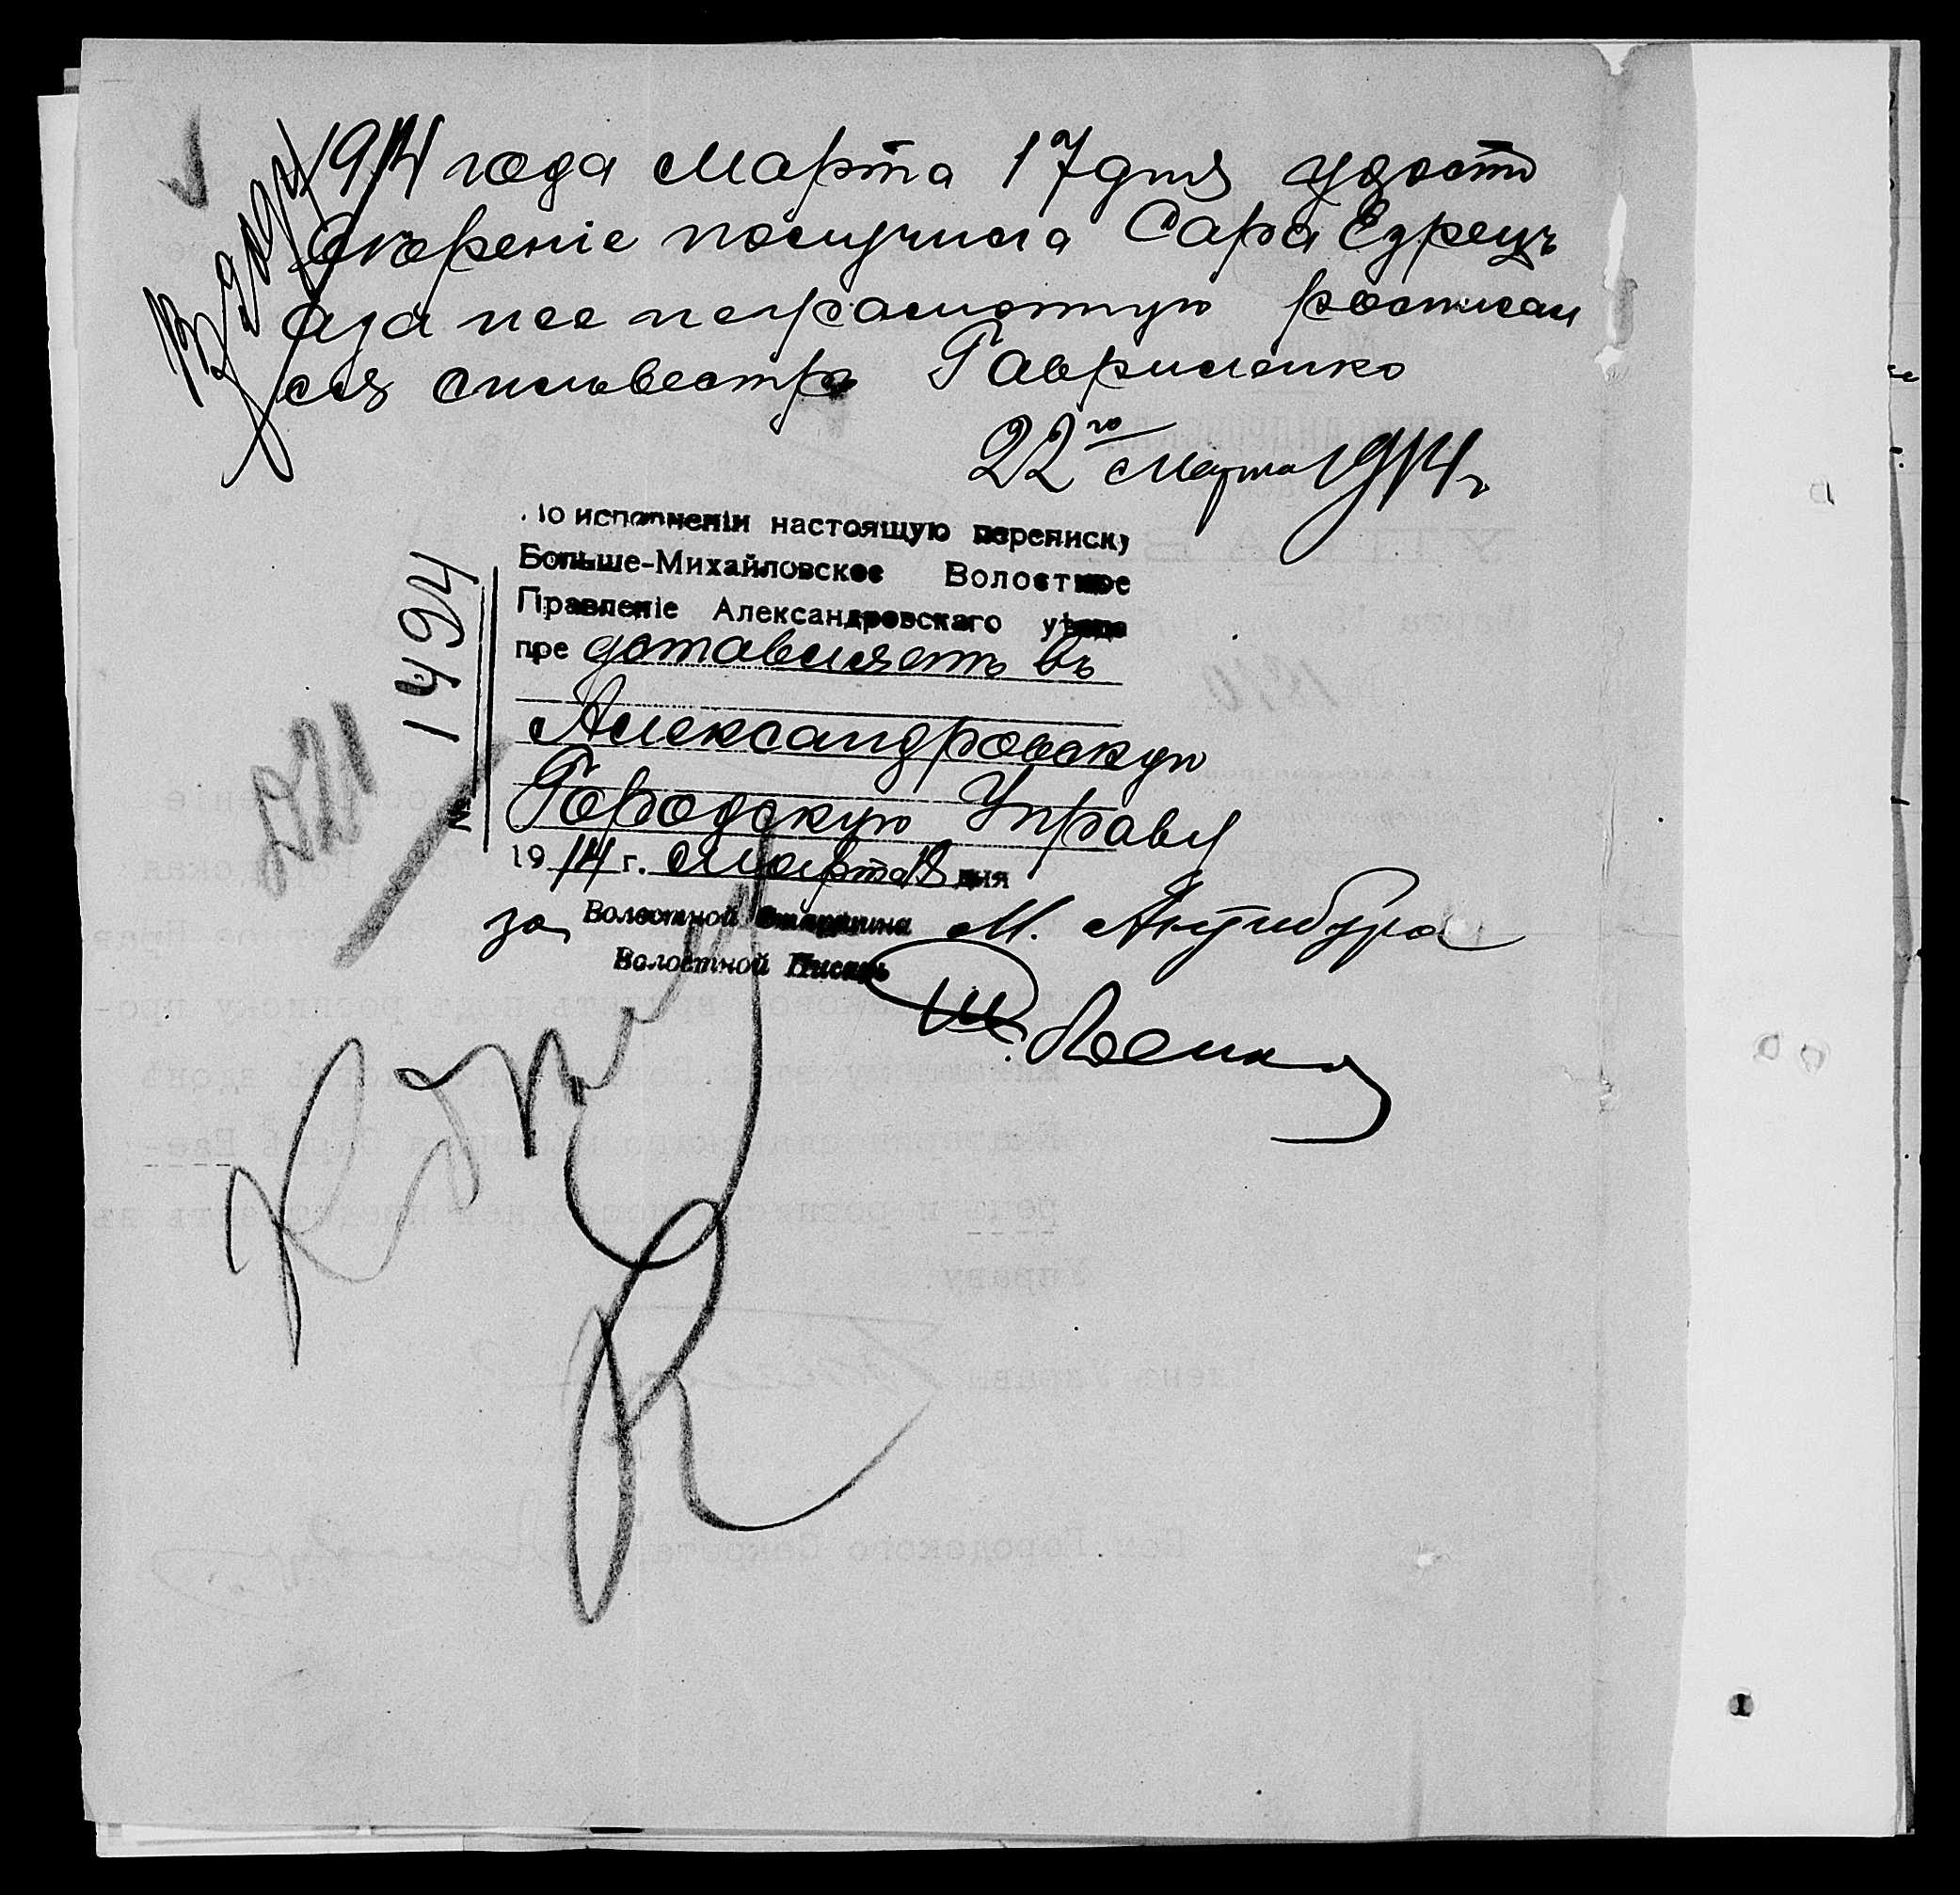 1914 года Марта 17 дня удосто
вѣреніе получила Сара Езрецъ
а за нее неграмотную росписал
ся Сильвестръ Гавриленко
22го Марта 1914 г
По исполненіи настоящую переписку
Больше-Михайловское Волостное
Правленіе Александровскаго уѣзда
пре доставляетъ въ
Александровскую
Городскую Управу
1914 г. Марта 18 дня
за Волостной Старшина М.
Волостной Писарь
№ 1494